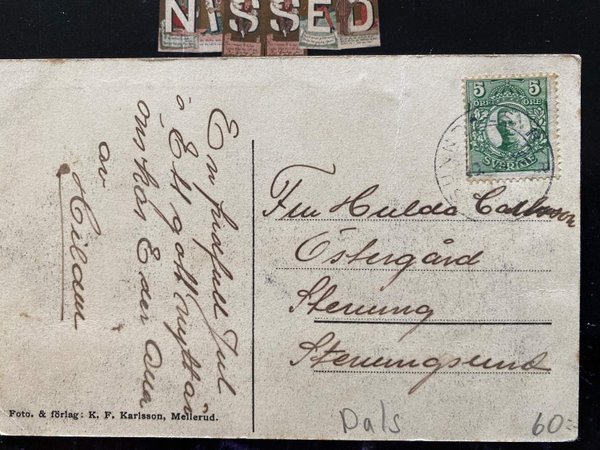 NISSED
En fridfull Jul
o Ett gott nytt år
önskas Eder Alla
av
Hildur
5 5
ÖRE ÖRE
SVERIGE
Fru Hulda Carlsson
Östergård
Stenung
Stenungsund
Foto. & förlag: K. F. Karlsson, Mellerud.
Dals
60:-